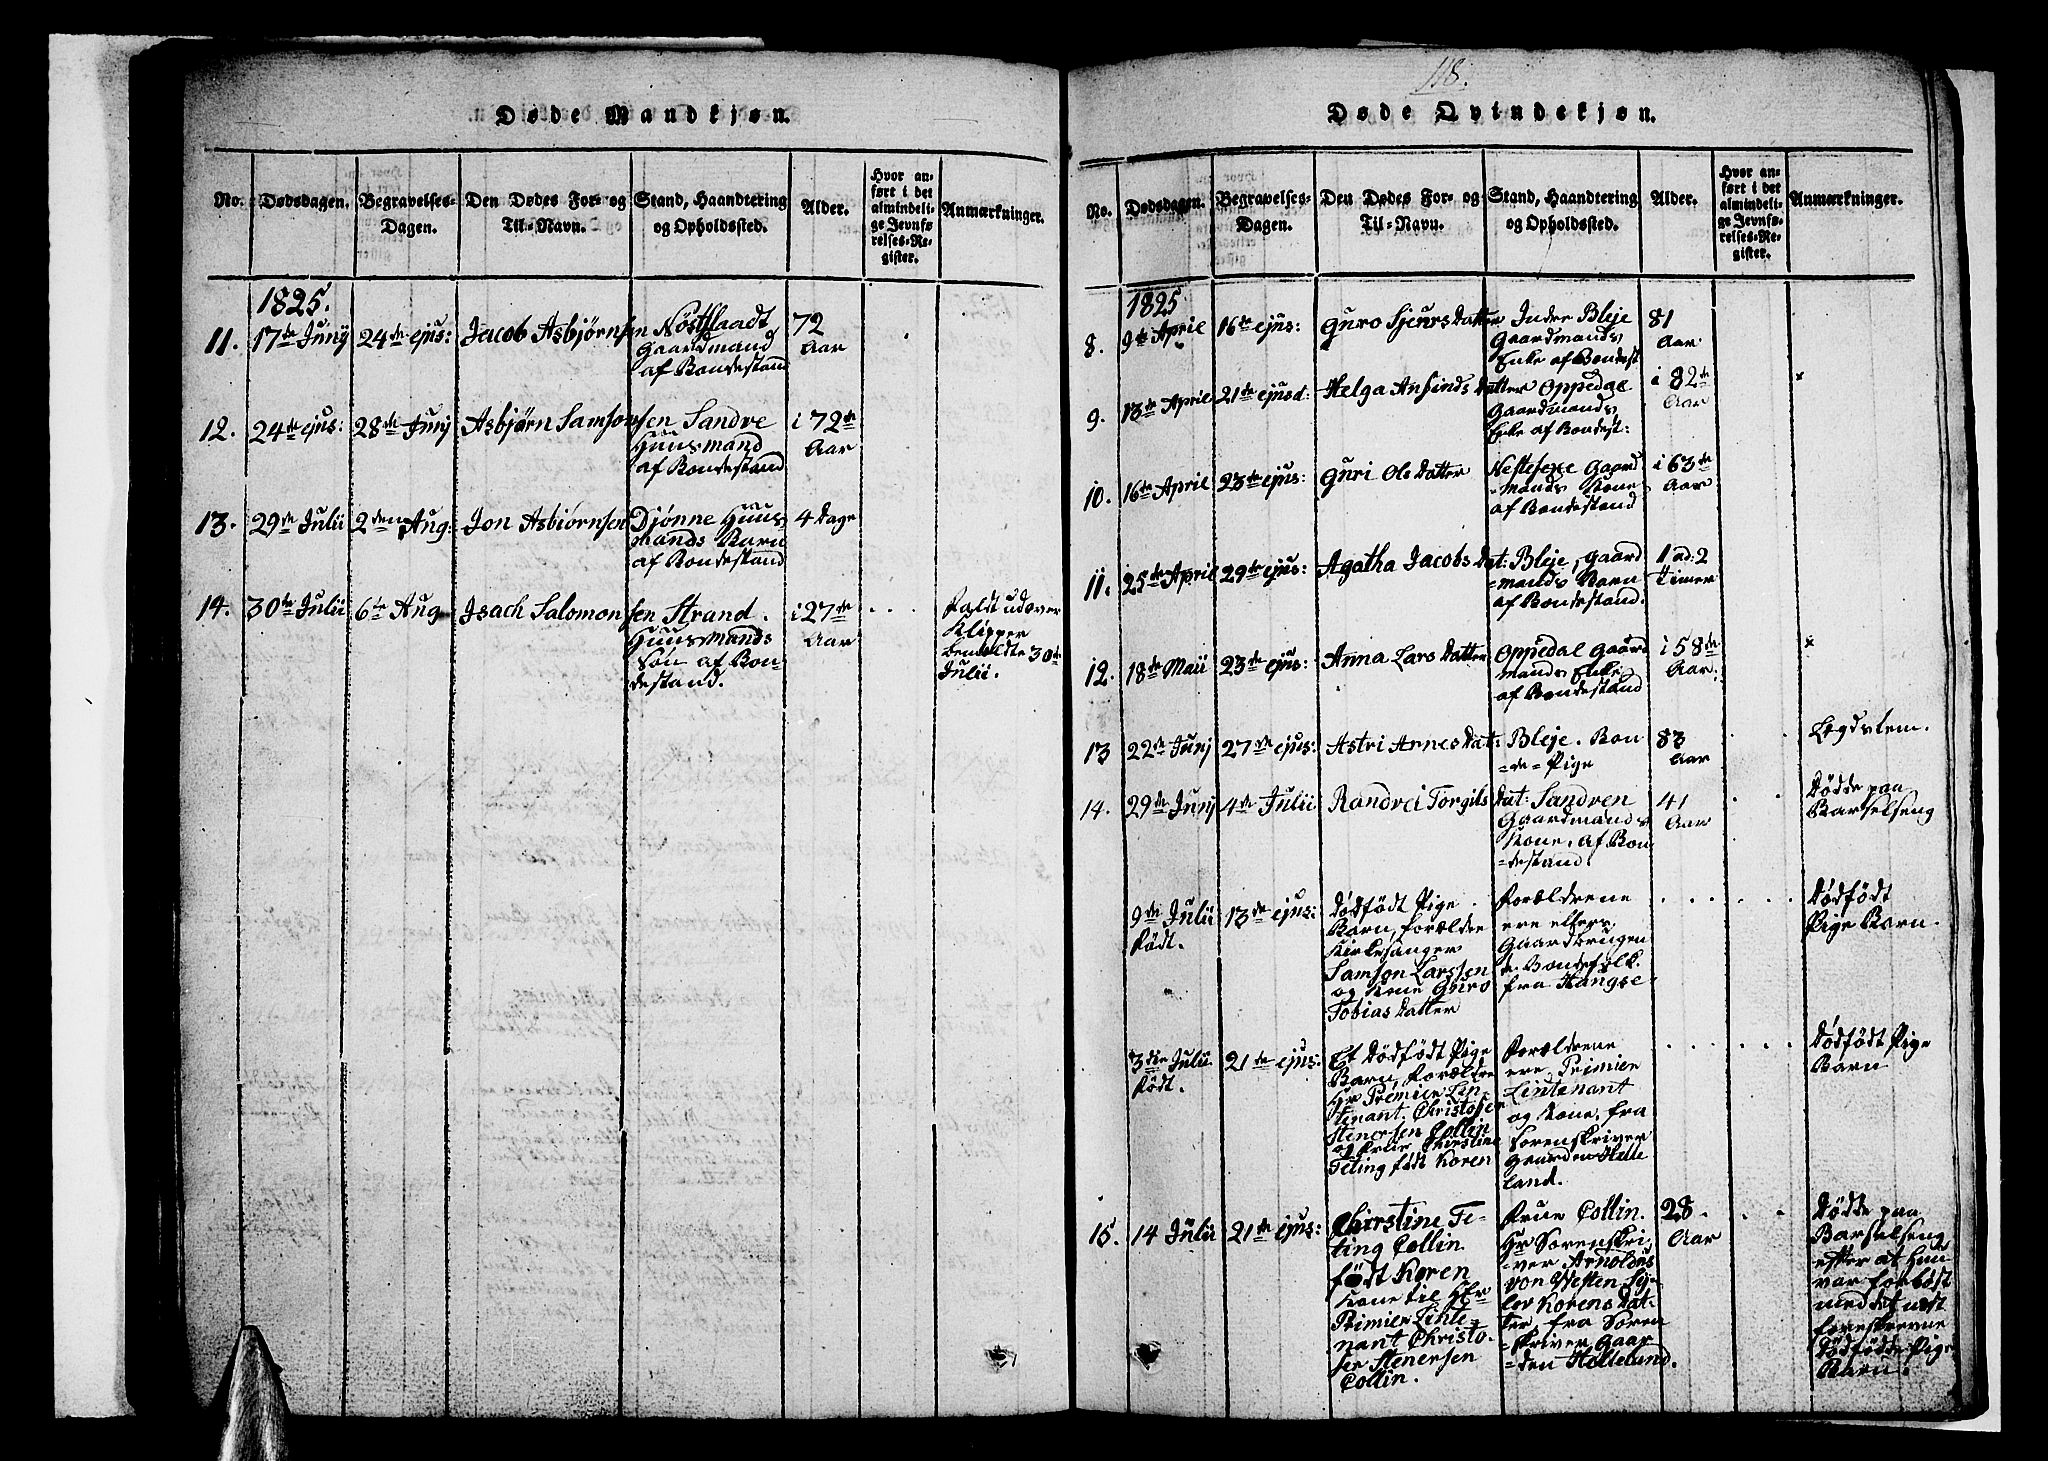 Døde Mandkjøn.
No.
Dødsdagen.
Begravelses-
Dagen.
Den Dødes For- og
Til-Navn.
Stand, Haandtering
og Opholdssted.
Alder.
Hvor an-
ført i det
almindeli-
ge Jevnfø-
relses-Re-
gister.
Anmærkninger.
1825.
11.
17de Junÿ
24de ejus:
Jacob Asbjørnsen
Nøstflaadt
Gaardmand
af Bondestand
72
Aar
12.
24de ejus:
28de Junj
Asbjørn Samsonsen
Sandre
Huusmand
af Bondestand
i 72de
Aar
13.
29de Julii
2den Aug:
Jon Asbiørnsen
Djønne Huus-
mands Barn
af Bondestand
4 Dage
14.
30de Julii
6te Aug
Isach Salomonsen
Strand.
Huusmands
Søn af Bon-
destand.
i 27de
Aar
Faldt udover
Klipper
bemeldte 30de
Julii.
118.
Døde Qvindekjøn.
No.
Dødsdagen.
Begravelses-
Dagen.
Den Dødes For- og
Til-Navn.
Stand, Haandtering
og Opholdssted.
Alder.
Hvor an-
ført i det
almindeli-
ge Jevnfø-
relses-Re-
gister.
Anmærkninger.
1825
8.
9de April
16de ejus:
Guro Sjeurs Datter
Indre Bleje
Gaardmands
Enke af Bondest
81
Aar
9.
13de April
21de ejusd:
Helga Ansinds Datter
Oppedal
Gaardmands
Enke af Bondest:
i 82de
Aar
10.
16de April
23de ejus:
Guri Ols Datter
Gaard
-mands Kone
af Bondestand
i 63de
Aar
11.
25de April
29de ejus:
Agatha Jacobs Dat:
Bleje, Gaard
-mands Barn
af Bondestand.
1 ad: 2
Timer
12.
18de Maii
23de ejus:
Anna Lars Datter
Oppedal Gaard
mands Enke
af Bondestand
i 58de
Aar.
13
22de Junj
27de ejus:
Astri Arnes Dat:
Bleje. Bon
-de-Pige
83
Aar
Lægdslem.
14.
29de Junj
4de Julii
Randvei Torgils Dat:
Sandven
Gaardmands
Kone, af Bon
-destand.
41
Aar
Dødde paa
Barselseng
9de Julii
Født.
13de ejus:
Dødfödt Pige
Barn, forældre
Kirkesanger
Samson Larssen
og Kone Guro
Tobias Datter
Forældrene
ere ellers
Gaardbrugen
de Bondefolk
fra
Dødfödt
Pige Barn.
3die Julii
Födt.
21de ejus:
Et Dödfödt Pige
Barn, Forældre
Hr Premier Liu-
tenant Christofer
Stenersen Collin
og Frue Christine
Teting födt Koren
Forældrene
ere Primier
Liutenant
og Kone, fra
Sorenskriver
Gaarden Helle
land.
Dödfödt Pige
Barn
15.
14 Julii
21de ejus:
Christine Te-
ting Collin
født Koren
Kone til Hr
Primier Liute-
nant Christo-
fer Stenersen
Collin.
Frue Collin.
Hr Sorenskri-
ver Arnoldus
von Westen Syl
Korens Dat-
ter, fra Soren
-skriver Gaar
-den Helleland.
28
Aar
Dödde paa
Barselseng
efter at hun
var forløst
med det næst
foreskrevne
Dödfödde Pige
Barn.